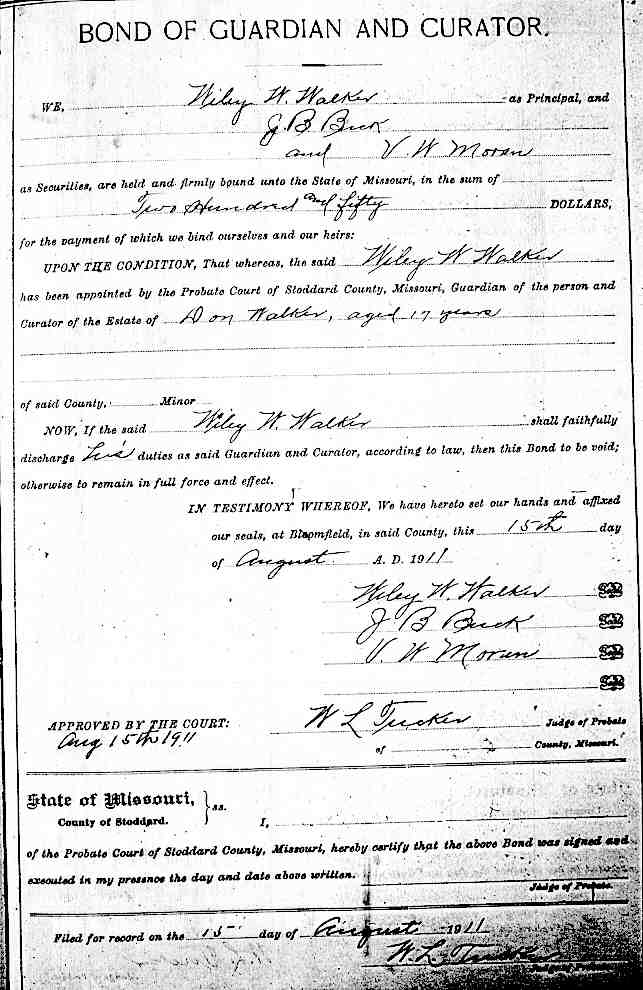 BOND OF GUARDIAN AND CURATOR.
WE, Wiley W. Walker as Principal, and
J B Buck
and V. W Moran
as Securities, are held and firmly bound unto the State of Missouri, in the sum of
Two Hundred and fifty DOLLARS,
for the payment of which we bind ourselves and our heirs:
UPON THE CONDITION, That whereas, the said Wiley W Walker
has been appointed by the Probate Court of Stoddard County, Missouri, Guardian of the person and
Curator of the Estate of Don Walker, aged 17 years
of said County, Minor
NOW, If the said Wiley W. Walker shall faithfully
discharge his duties as said Guardian and Curator, according to law, then this Bond to be void;
otherwise to remain in full force and effect.
IN TESTIMONY WHEREOF, We have hereto set our hands and affixed
our seals, at Bloomfield, in said County, this 15th day
of August A. D. 1911
Wiley W. Walker Seal
J B Buck Seal
V. W Moran Seal
Seal
APPROVED BY THE COURT: W L Tucker Judge of Probate
Aug 15th 1911 of County, Missouri.
State of Missouri, } ss.
County of Stoddard. I,
of the Probate Court of Stoddard County, Missouri, hereby certify that the above Bond was signed and
executed in my presence the day and date above written.
Judge of Probate.
Filed for record on the 15 day of August 1911
W. L. Tucker